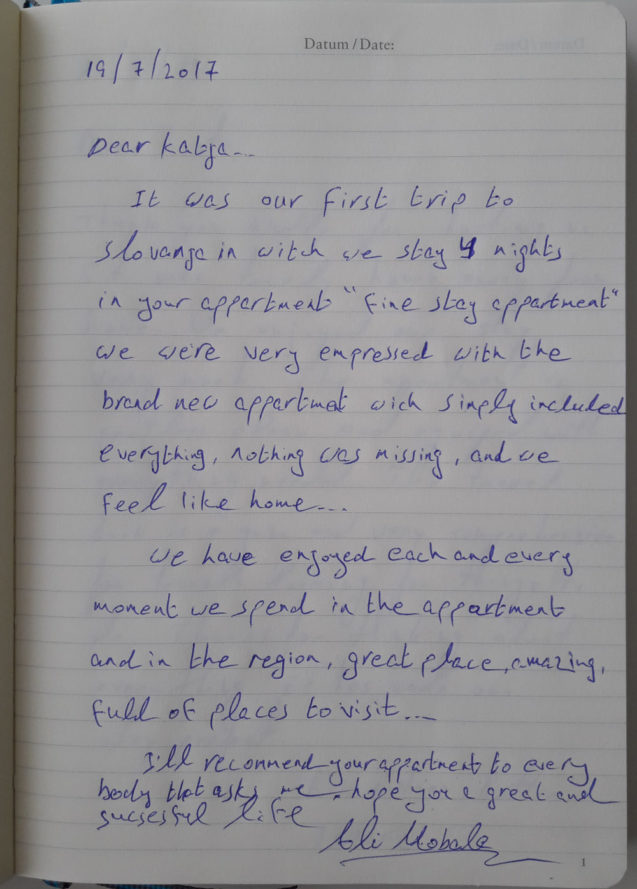 Datum / Date:
19/7/2017
Dear Katja...
It was our first trip to
Slovanja in witch we stay 4 nights
in your appartment "Fine stay appartment"
we were very empressed with the
brand new appartmet wich simply included
everything, nothing was missing, and we
feel like home...
We have enjoyed each and every
moment we spend in the appartment
and in the region, great place, amazing,
full of places to visit...
I'll recommend your appartment to every
body that asks me. hope you a great and
sucsesful life
Eli
1